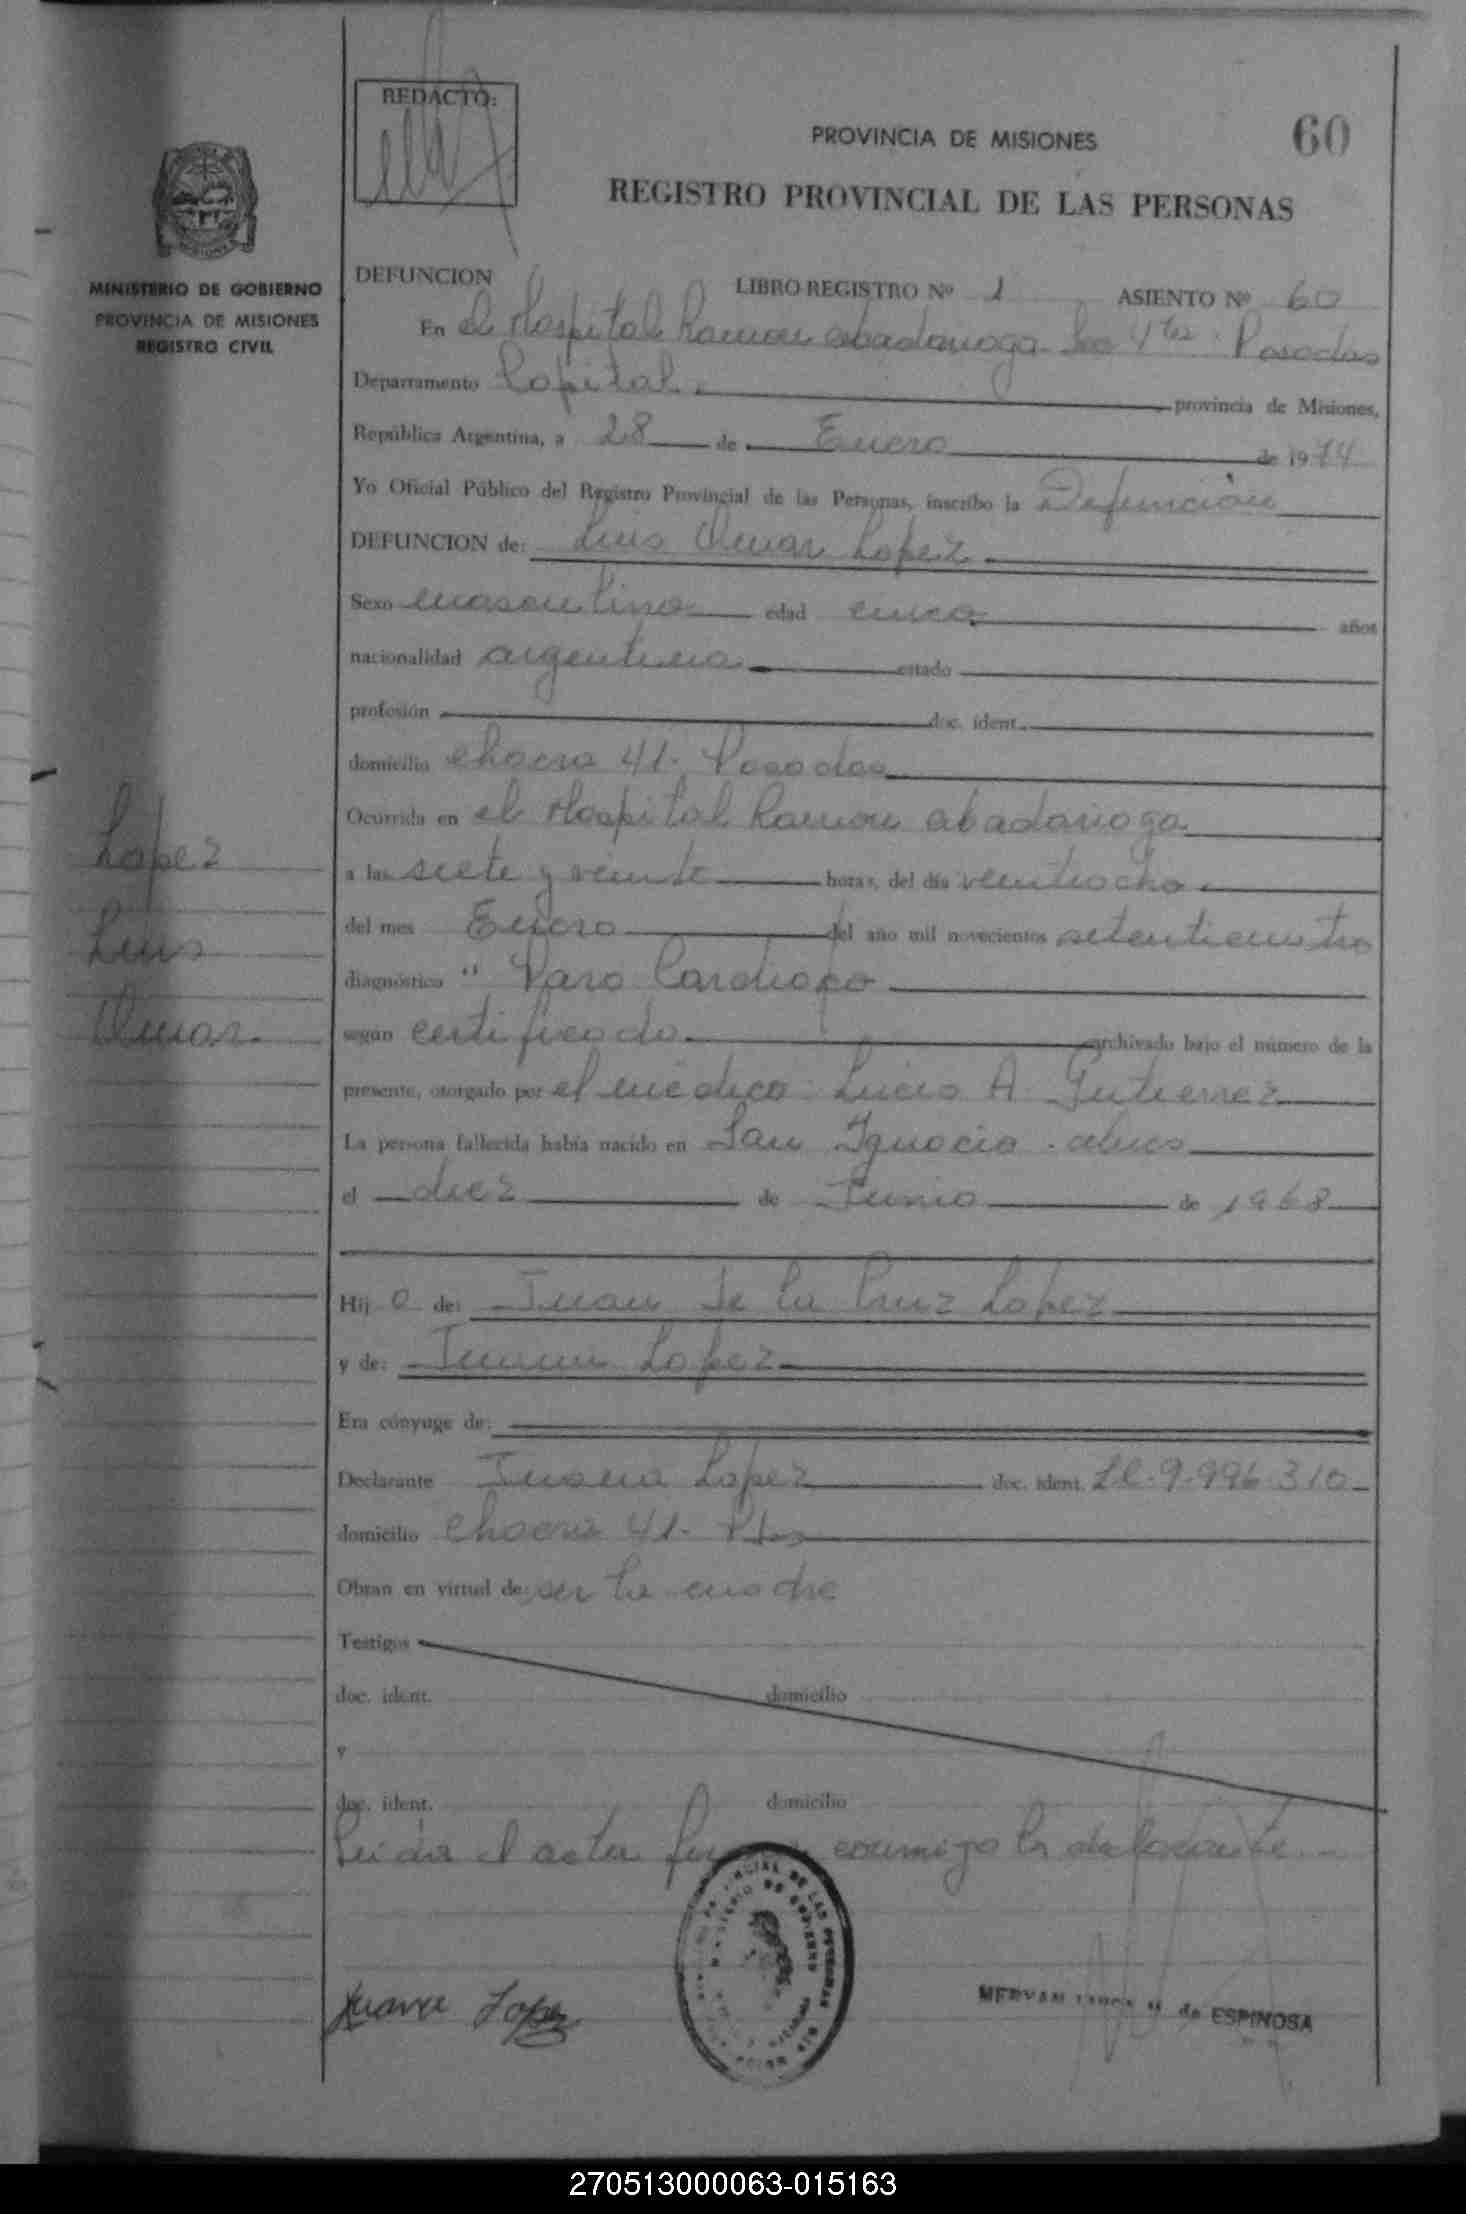 REDACTO:
PROVINCIA DE MISIONES
60
REGISTRO PROVINCIAL DE LAS PERSONAS
MINISTERIO DE GOBIERNO
PROVINCIA DE MISIONES
REGISTRO CIVIL
DEFUNCION LIBRO REGISTRO Nº 1 ASIENTO Nº 60
En el Hospital Ramon abadarioga Posadas
Departamento Capital provincia de Misiones,
República Argentina, a 28 de Enero de 1974
Yo Oficial Público del Registro Provincial de las Personas, inscribo la Defunción
DEFUNCION de: Luis Omar Lopez
Sexo masculino edad cinco años
nacionalidad argentina estado
profesión doc. ident.
domicilio Chacra 41. Posadas
Ocurrida en el Hospital Ramon abadarioga
Lopez
a las siete y veinte horas, del día veintiocho
del mes Enero del año mil novecientos setenticuatro
Luis
diagnóstico " Paro Cardiaco
Omar.
según certificado archivado bajo el número de la
presente, otorgado por el médico: Lucio A. Gutierrez
La persona fallecida había nacido en San Ignacio.
el diez de Junio de 1968
Hij o de: Juan De la Cruz Lopez
y de: Juana Lopez
Era cónyuge de:
Declarante Juana Lopez doc. ident. LC. 9.996.310
domicilio Chacra 41. Pdas
Obran en virtud de: ser la madre
Testigos
doc. ident. domicilio
y
doc. ident. domicilio
Leida el acta conmigo la declarante
Juana Lopez
de ESPINOSA
270513000063-015163